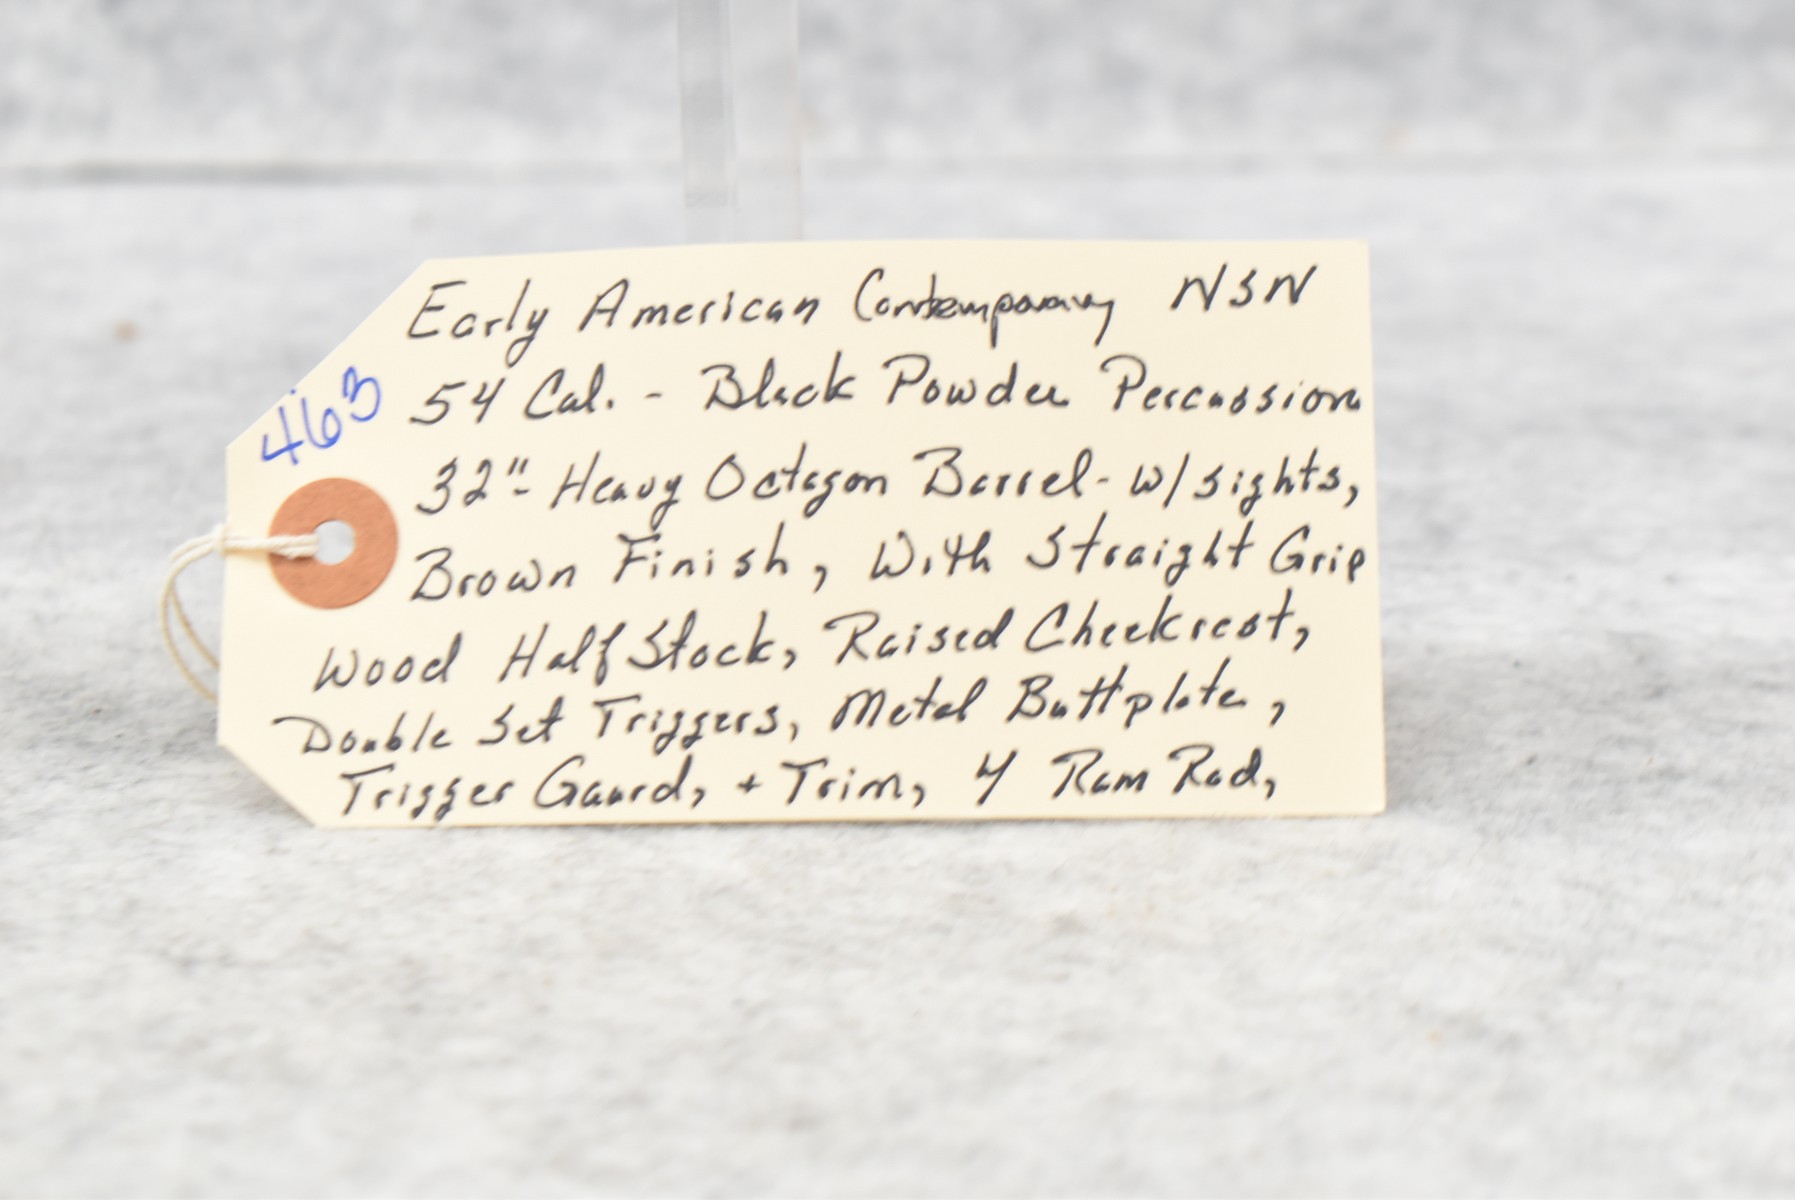 Early American Contemporary NSN
463
54 Cal. - Black Powder Percussion
32"- Heavy Octagon Barrel - w/sights,
Brown Finish, With Straight Grip
Wood Half Stock, Raised Cheekrest,
Double Set Triggers, Metal Buttplate,
Trigger Gaurd, + Trim, 4 Ram Rod,